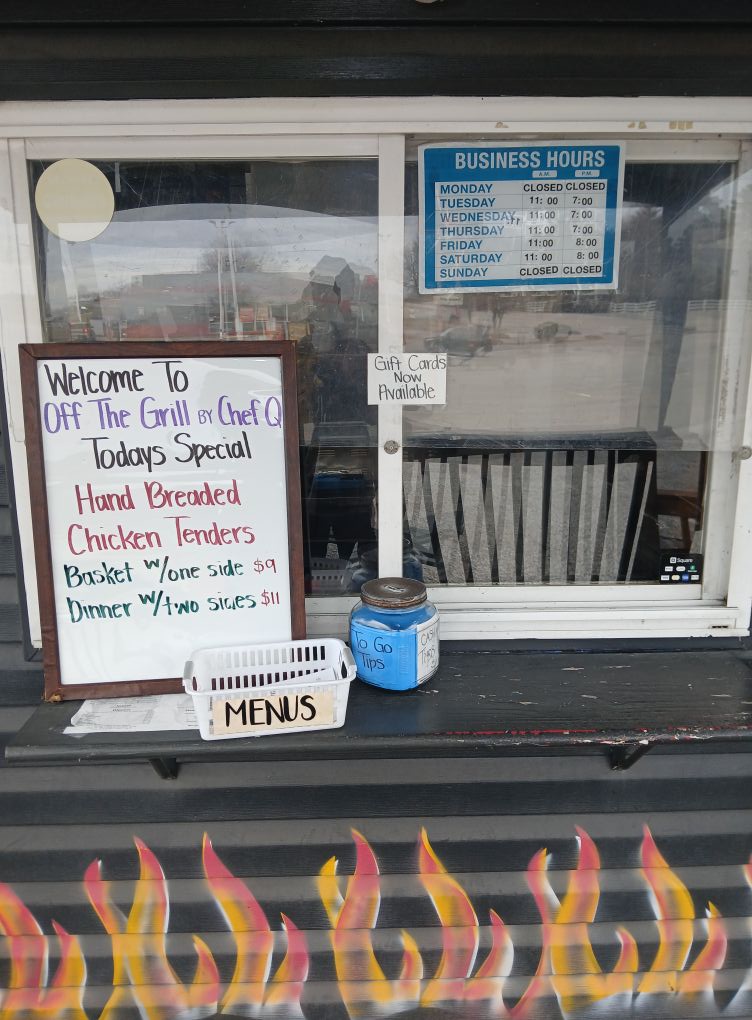 Welcome To
Off The Grill BY Chef Q
Todays Special
Hand Breaded
Chicken Tenders
Basket w/one side $9
Dinner w/two sides $11
BUSINESS HOURS
A.M. P.M.
MONDAY CLOSED CLOSED
TUESDAY 11:00 7:00
WEDNESDAY 11:00 7:00
THURSDAY 11:00 7:00
FRIDAY 11:00 8:00
SATURDAY 11:00 8:00
SUNDAY CLOSED CLOSED
Gift Cards
Now
Available
Square
To Go
Tips
CASH
TIPS
MENUS